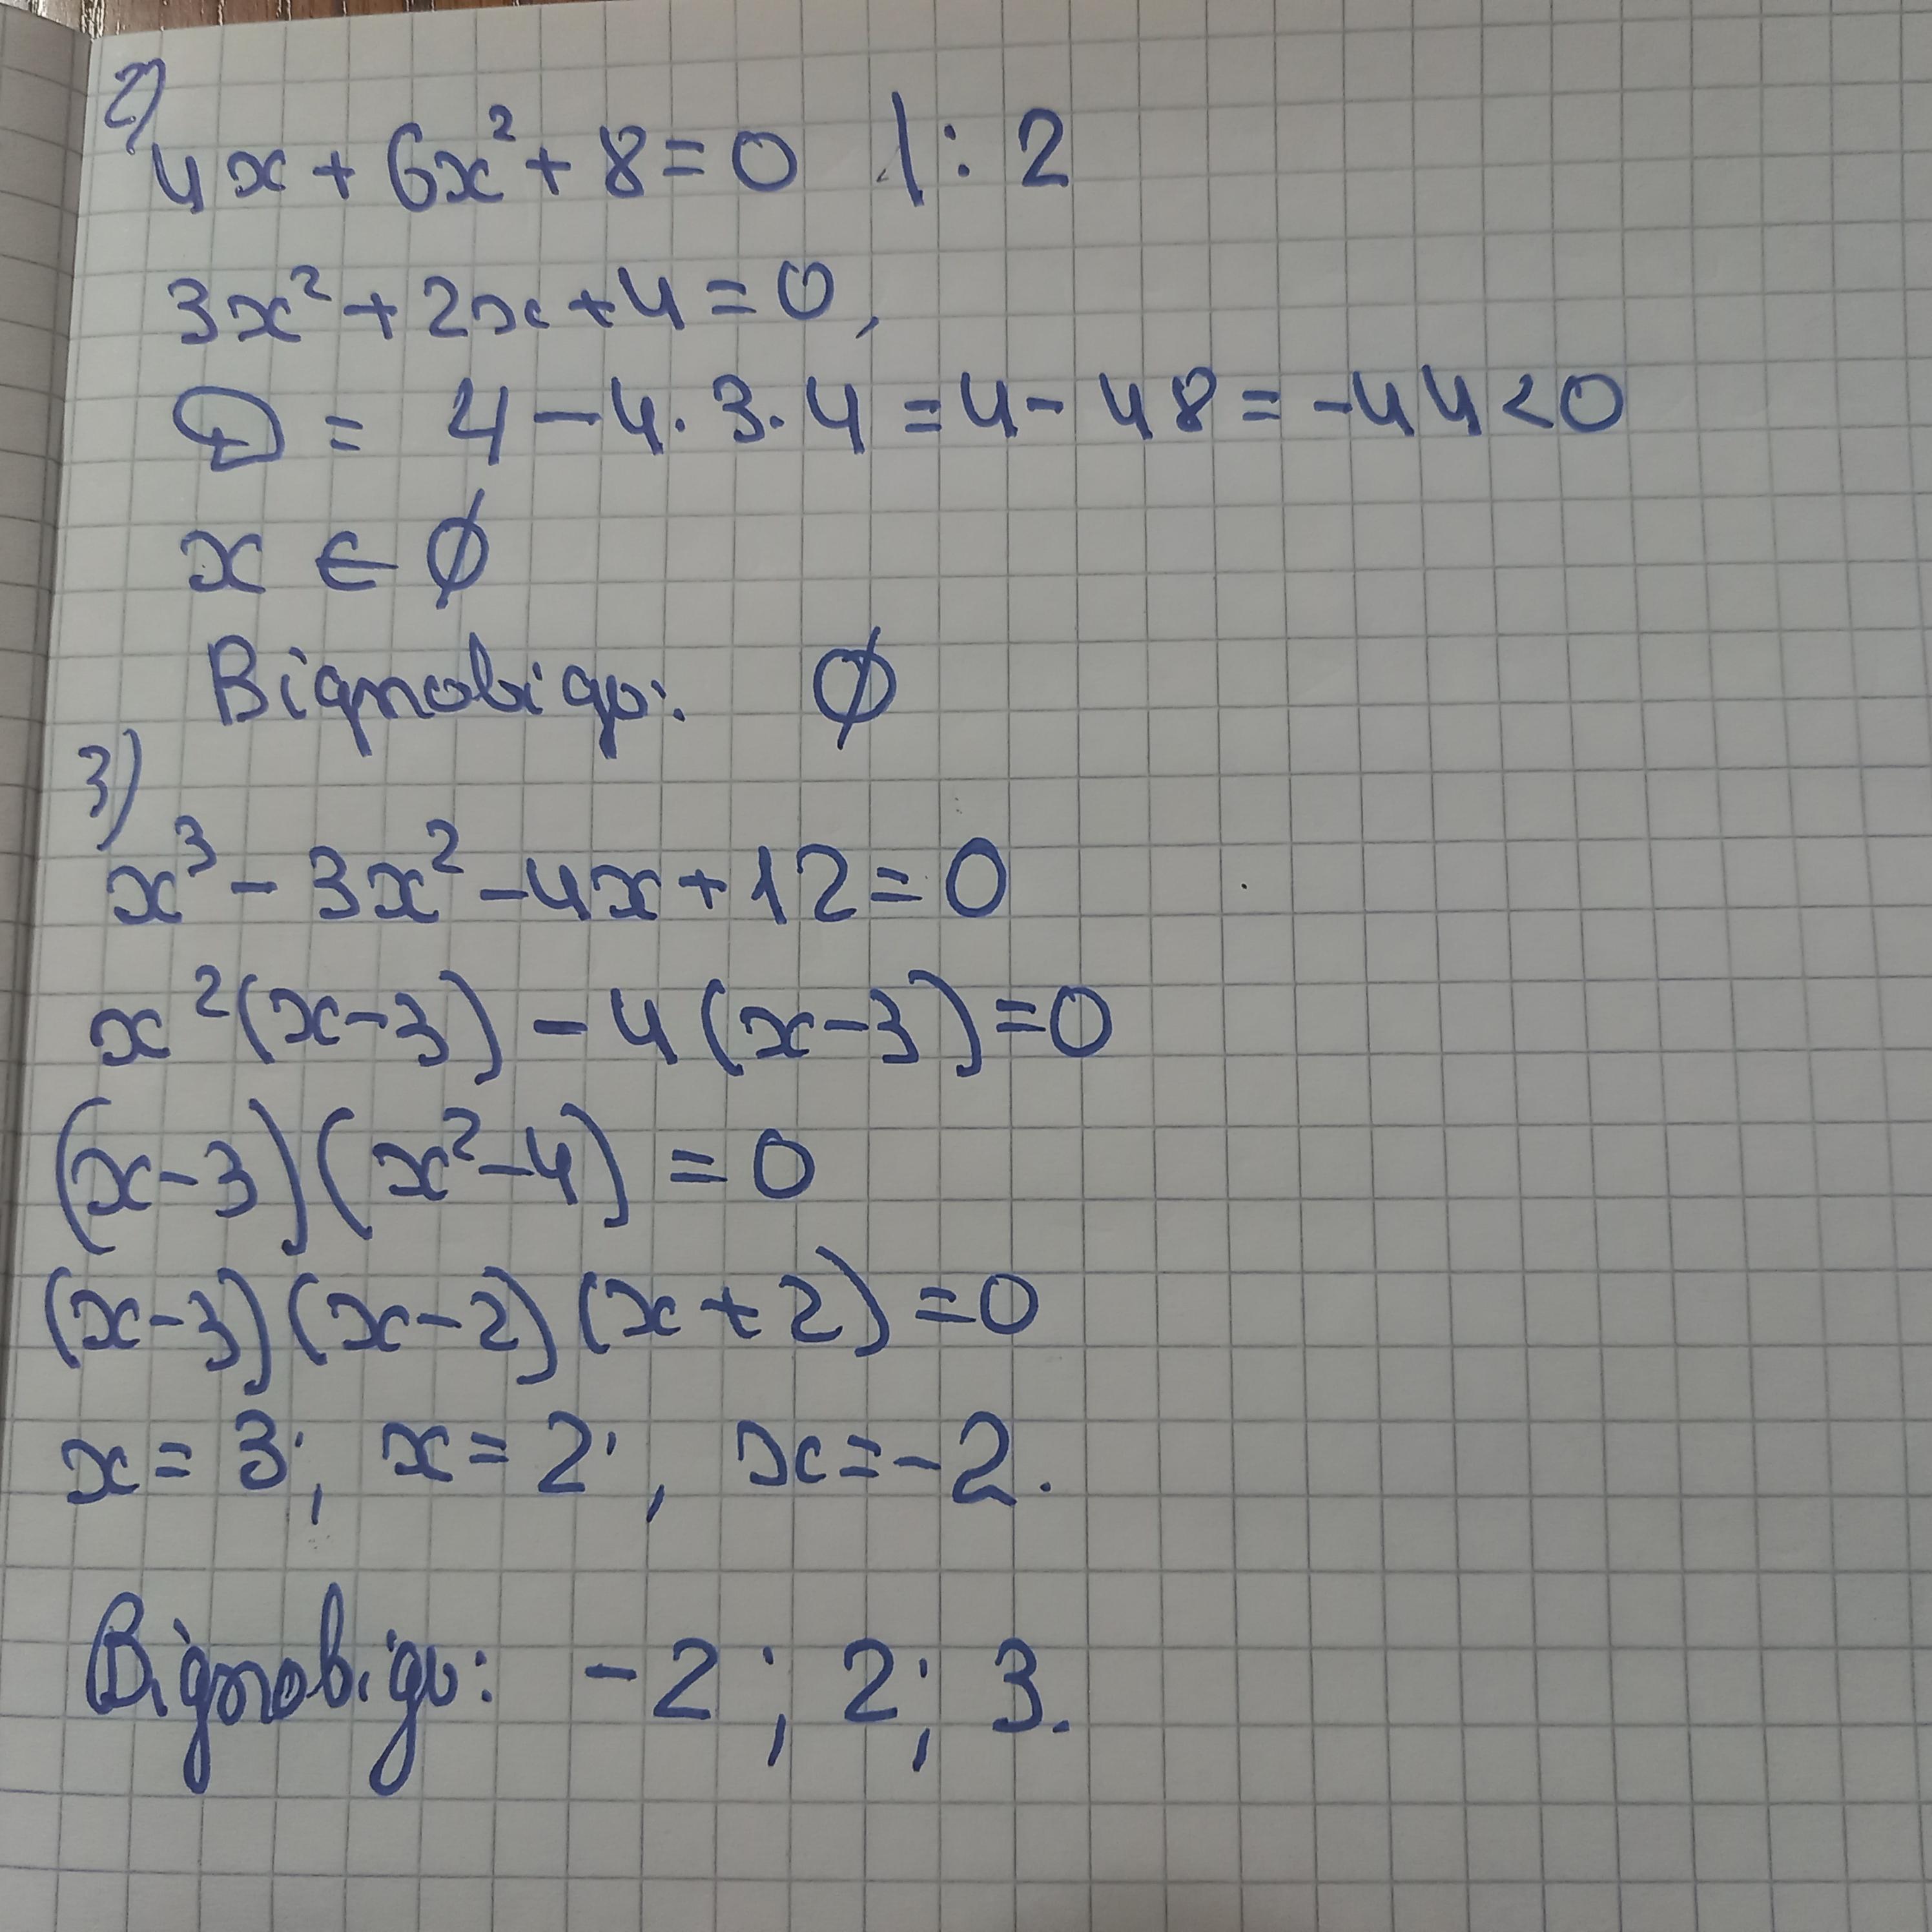 2)
4x + 6x² + 8 = 0 |: 2
3x² + 2x + 4 = 0,
D = 4 - 4 · 3 · 4 = 4 - 48 = -44 < 0
x ∈ ∅
Відповідь: ∅
3)
x³ - 3x² - 4x + 12 = 0
x²(x-3) - 4(x-3) = 0
(x-3)(x²-4) = 0
(x-3)(x-2)(x+2) = 0
x = 3; x = 2; x = -2.
Відповідь: -2; 2; 3.